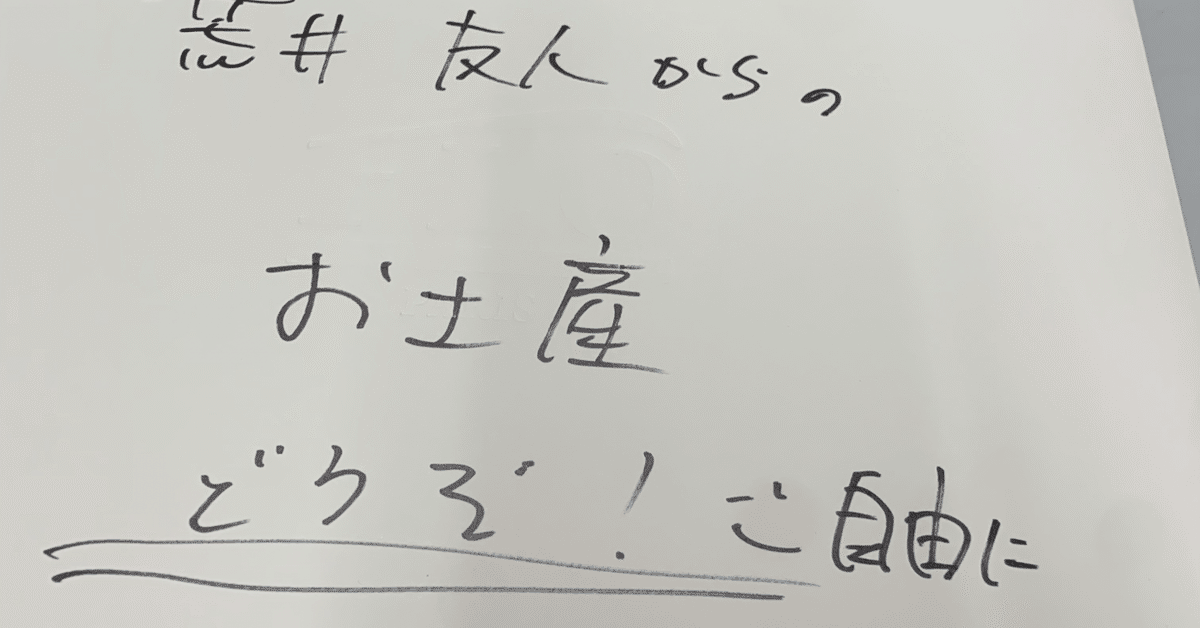 井 友人からの
お土産
どうぞ! ご自由に